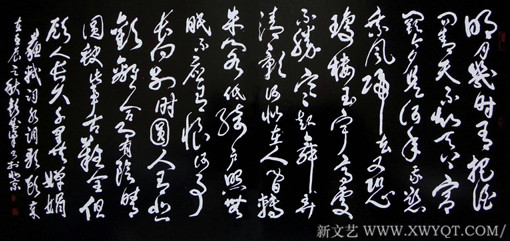 明月幾時有把酒
問青天不知天上宮
闕今夕是何年我欲
乘風歸去又恐
瓊樓玉宇高處
不勝寒起舞弄
清影何似在人間轉
朱閣低綺戶照無
眠不應有恨何事
長向別時圓人有悲
歡離合月有陰晴
圓缺此事古難全但
願人長久千里共嬋娟
蘇軾詞水調歌頭
新文艺 WWW.XWYQT.COM